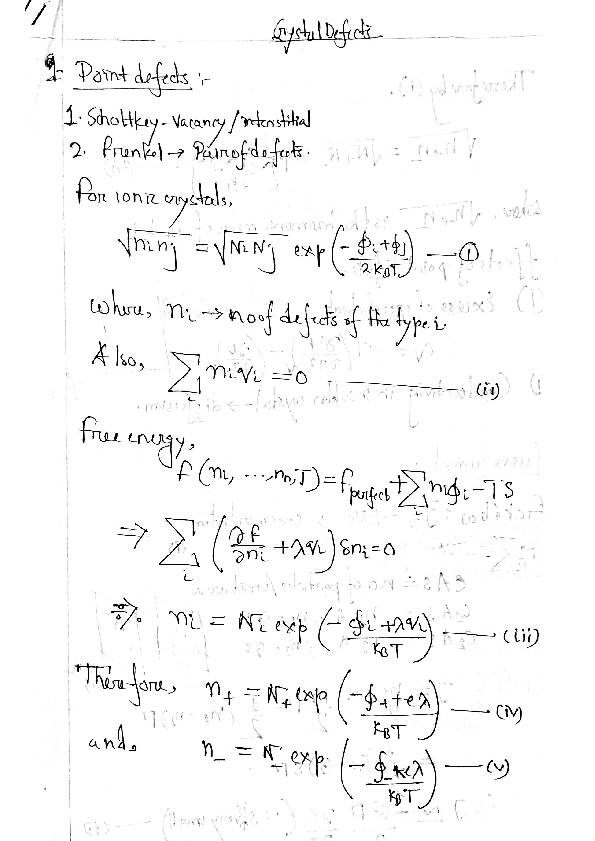 1/
Crystal Defects
1. Point defects :-
1. Schottkey - vacancy / interstitial
2. Frenkel → Pair of defects.
For ionic crystals,
√(ni nj) = √(Ni Nj) exp (- (ϕi + ϕj) / 2KBT) —— (i)
where, ni → no of defects of the type i
Also, ∑i ni qi = 0 —— (ii)
free energy,
f (ni, ..., nn, T) = fperfect + ∑i niϕi - TS
⇒ ∑i (∂f/∂ni + λqi) δni = 0
∴ ni = Ni exp (- (ϕi + λqi) / KBT) —— (iii)
Therefore, n+ = N+ exp (- (ϕ+ + eλ) / KBT) —— (iv)
and, n- = N- exp (- (ϕ- - eλ) / KBT) —— (v)